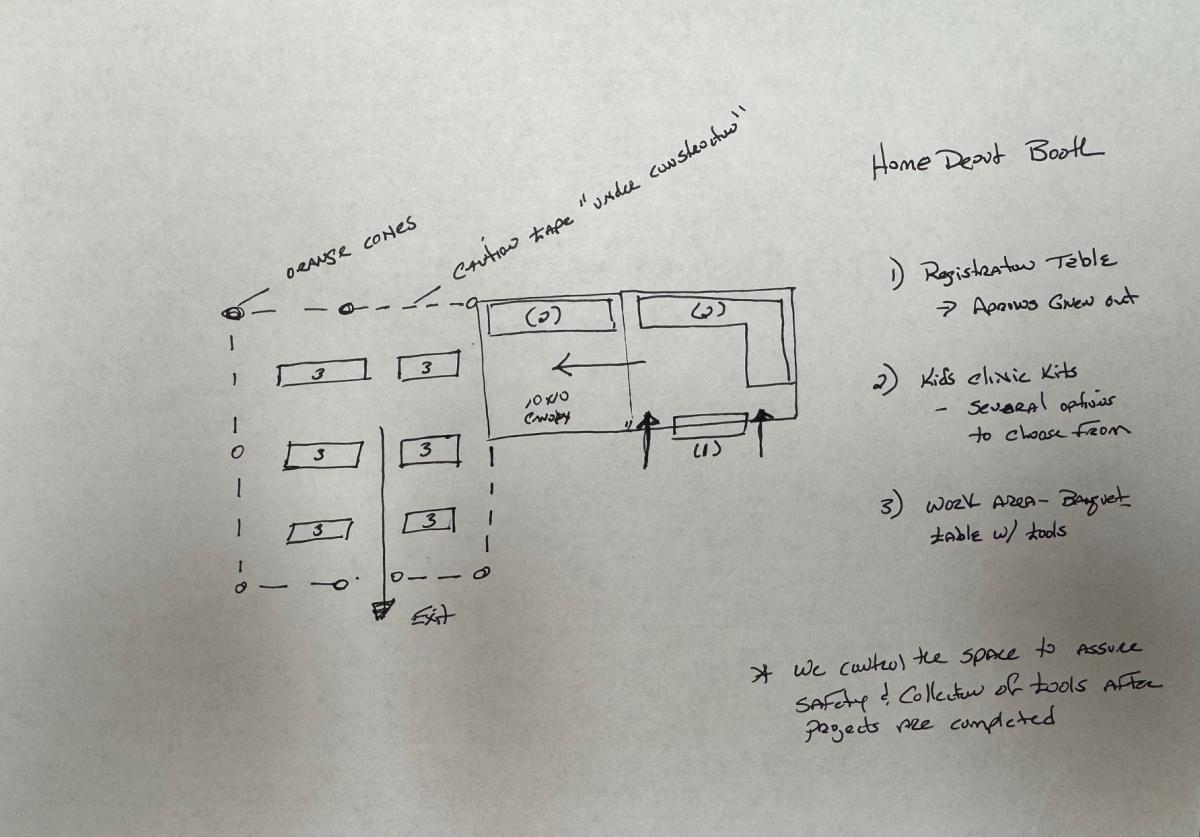 Home Depot Booth
ORANGE CONES
CAUTION TAPE "UNDER CONSTRUCTION"
1) Registration Table
→ Aprons Given out
2) Kids clinic Kits
- Several options
to choose from
3) WORK AREA - Banquet
table w/ tools
(2)
(2)
3
3
10x10
Canopy
3
3
(1)
3
3
Exit
* We control the space to ASSURE
SAFety & Collection of tools AFTER
projects ARE completed